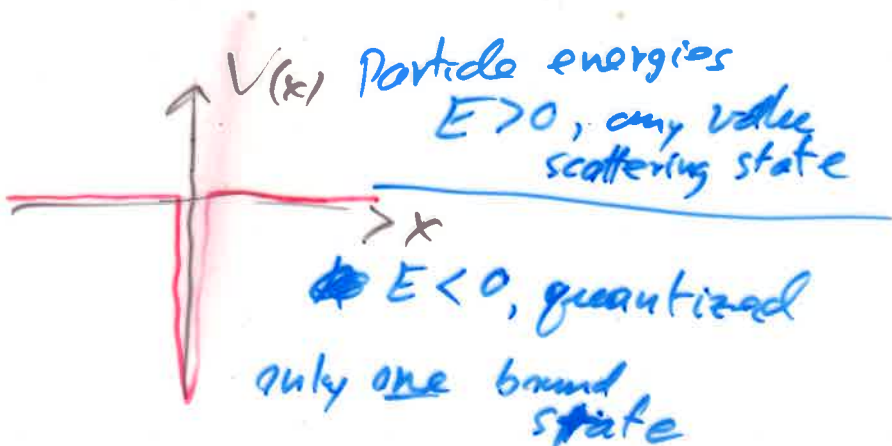 V(x) Particle energies
E>0, any value
scattering state
x
E<0, quantized
only one bound
state